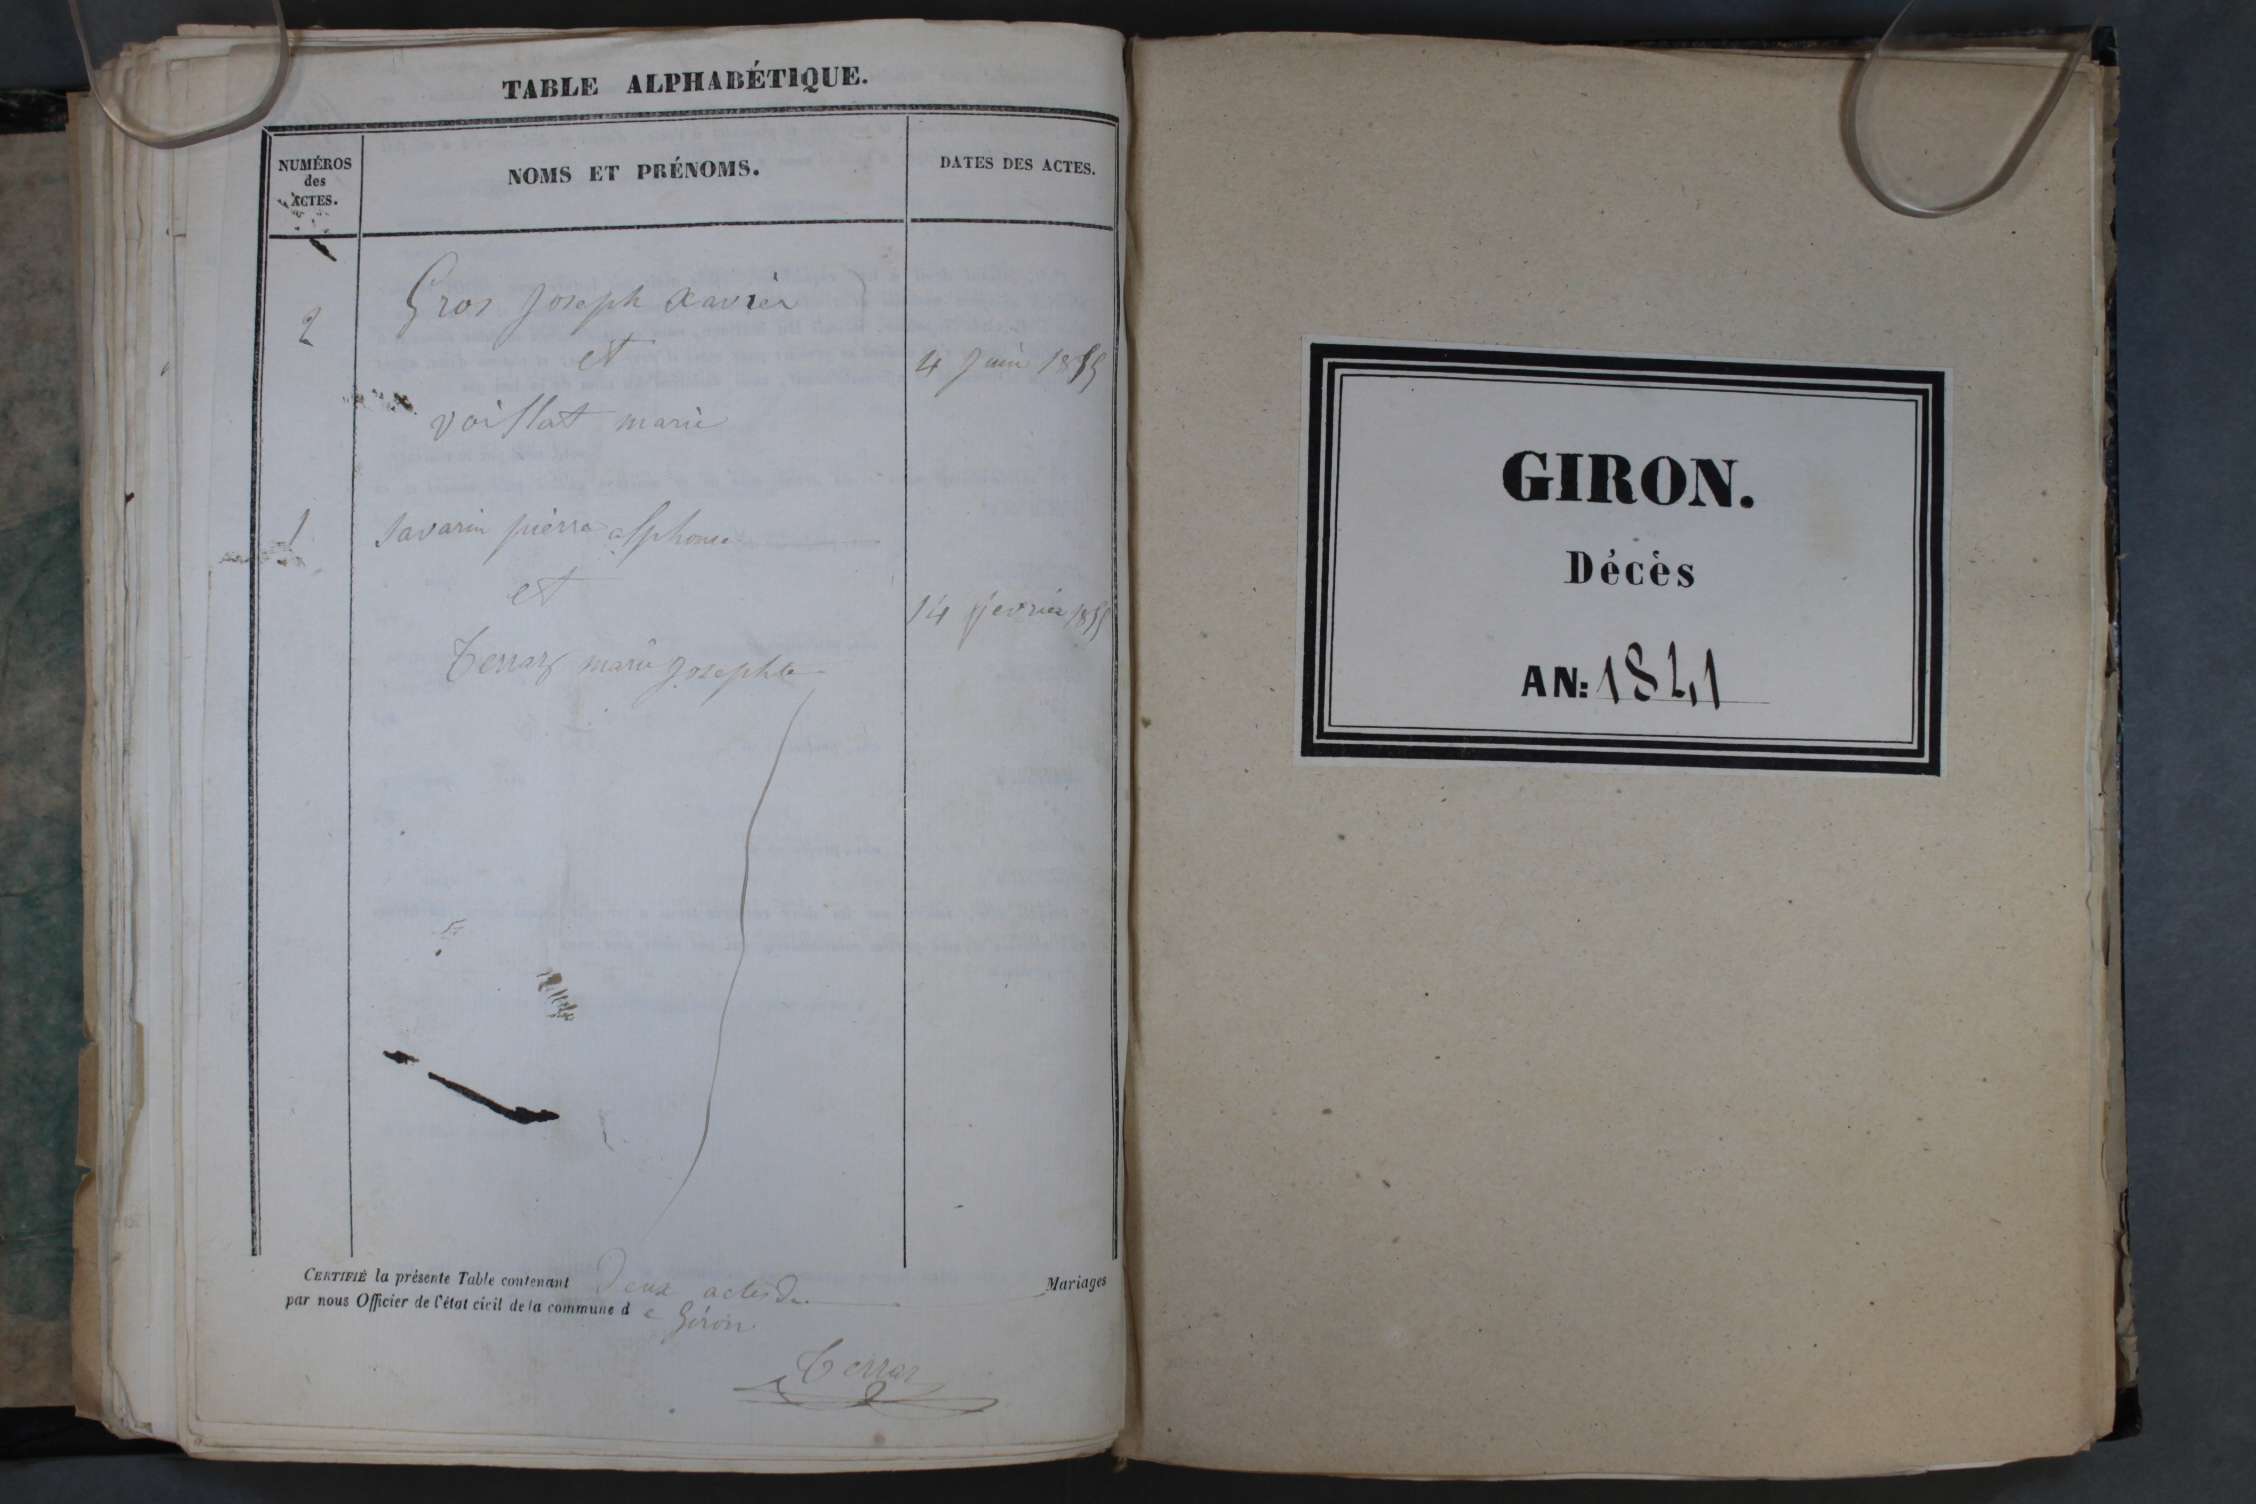 TABLE ALPHABÉTIQUE.
NUMÉROS
des
ACTES.
NOMS ET PRÉNOMS.
DATES DES ACTES.
2
Gros Joseph Xavier
et
4 Juin 1855
Voillat marie
1
Savarin pierre alphonse
et
14 fevrier 1855
Terraz marie Josephte
CERTIFIÉ la présente Table contenant Deux actes De Mariages
par nous Officier de l'état civil de la commune de Giron
Terraz
GIRON.
Décès
AN: 1841